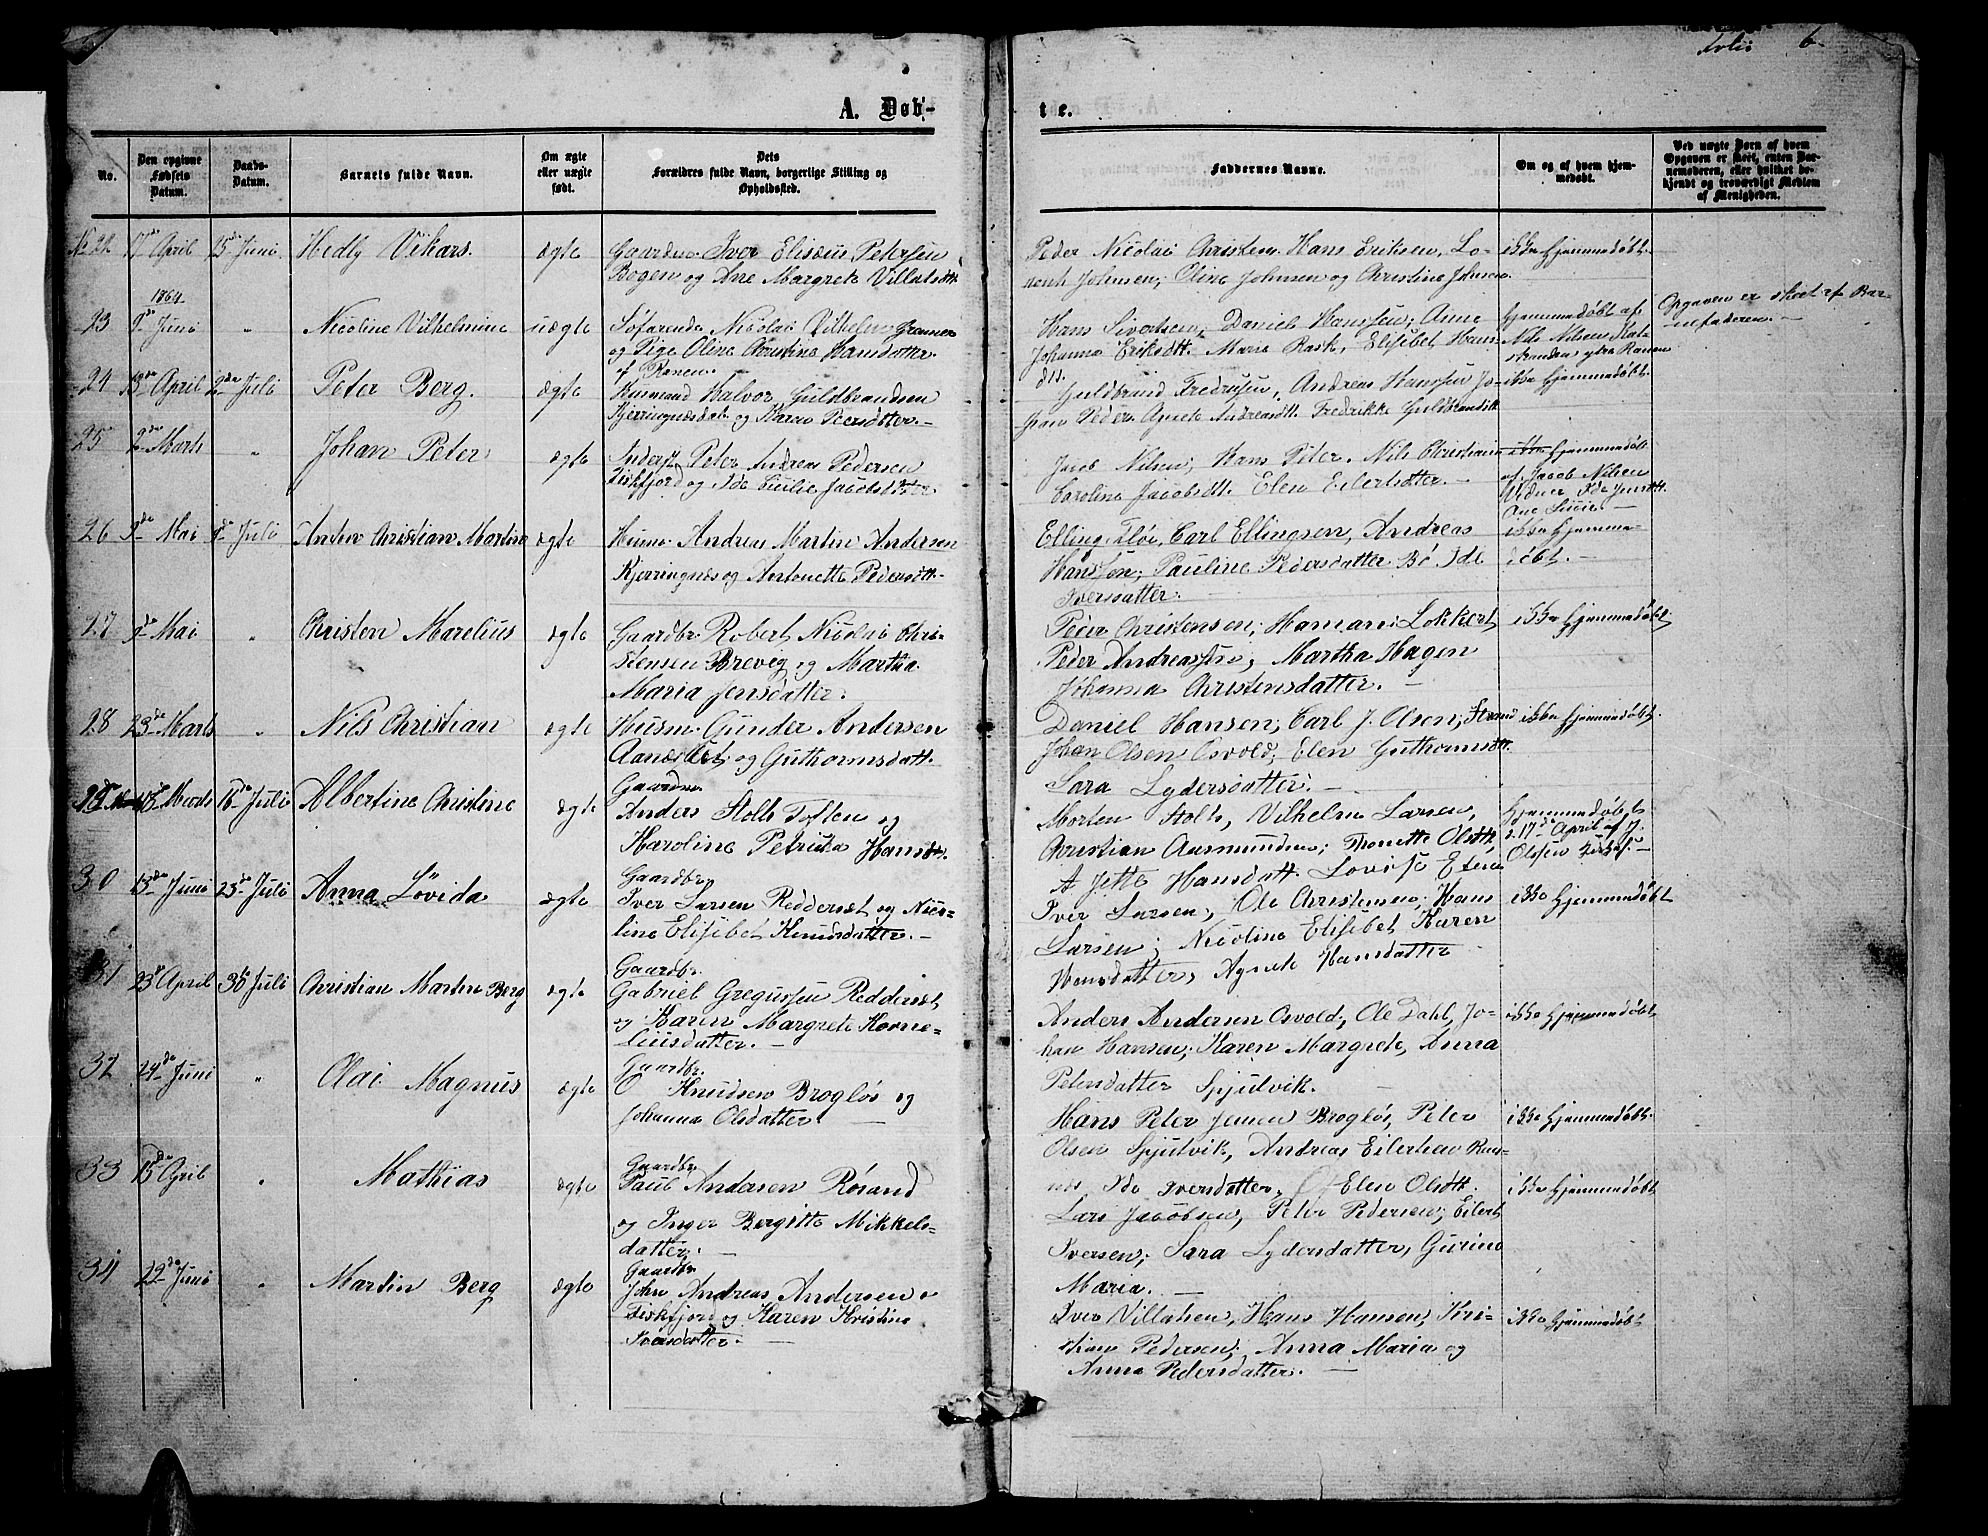 Folio 6.
A. Døb-
te.
No.
Den opgivne Fødsels Datum.
Daabs-Datum.
Barnets fulde Navn.
Om ægte eller uægte født.
Dets Forældres fulde Navn, borgerlige Stilling og Opholdssted.
Faddernes Navne.
Om og af hvem hjemmedøbt.
Ved uægte Børn af hvem Opgaven er skeet, enten Barnemoderen, eller hvilket bekjendt og troværdigt Medlem af Menigheden.
No 22 17de April 25de Juni Hedly Vikars. ægte
Gaardm. Iver Elisæus Petersen
Bogen og Ane Margrete Villatsdtt.
Peder Nicolai Christens. Hans Eriksen, Lo-
rents Johnsen; Oline Johnsen og Christine Johnsen
ikke hjemmedøbt.
1864
23 9de Juni " Nicoline Vilhelmine uægte
Søfarende Nicolai Vilhelm Gramer
og Pige Oline Christine Hansdotter
af Ranen.
Hans Sivertsen, Daniel Hanssen; Anne
Johanna Eriksdtt. Maria Rask, Elisibet Hans-
dtt.
hjemmedøbt af
Nils Nilsen
ytre Ranen
Opgaven er skeet af Bar-
nefaderen. —
24 13de April 2de Juli Peter Berg. ægte
Husmand Halvor Guldbrandsen
Kjerringnæsdal og Karen Peersdotter. —
Guldbrand Fredrksen, Andreas Hanssen Jo-
han Peder Agnete Andreasdtt. Fredrikke Guldbrandsdtt
ikke hjemmedøbt.
25 2de Marts " Johan Peter ægte
Inderst Peter Andreas Pedersen
Fiskfjord og Ida Cecilie Jacobsdatter
Jacob Nilsen; Hans Peter. Nils Christian
Caroline Jacobsdtt. Elen Eilertsdtter. —
ikke hjemmedøbt
af Jacob Nilsen
26 9de Mai 9de Juli Anton Christian Martin ægte
Husm. Andreas Martin Andersen
Kjerringnæs og Antonette Pedersdtt.
Elling Fløi, Carl Ellingsen, Andreas
Hanssøn; Pauline Pedersdatter Bø Ide
Iversdatter.
ikke hjemme-
døbt. —
27 2de Mai " Christen Marelius ægte
Gaardbr. Robert Nicolai Chri-
stensen Brevig og Martha
Maria Jensdatter.
Peder Christensen; Hamani Lokkert,
Peder Andreassen, Martha Hagen
Johanna Christensdatter. —
ikke hjemmedøbt
28 23de Marts " Nils Christian ægte
Husm. Gunder Andersen
og Guthormsdatt.
Daniel Hansen; Carl J. Olsen, Strand
Johan Olsen Osvold; Elen Guthormsdtt.
Sara Lydersdatter. —
ikke hjemmedøbt.
29 Marts 16de Juli Albertine Christine ægte
Gaardm.
Anders Stolt Toften og
Karoline Petrika Hansdtt.
Morten Stolt, Vilhelm Larsen,
Christian Aasmundsen; Thonette Olsdtt,
A Jette Hansdatt. Lovise Elen
hjemmedøbt
d. 17de April af J.
Olssen
30 13de Juni 23de Juli Anna Lövida ægte
Gaardbr.
Iver Larsen Reddersæt og Nico-
line Elisibet Knudsdatter. —
Iver Larsen, Ole Christensen, Hans
Larsen; Nicoline Elisibet Karen
Hansdatter, Agnete Hansdatter
ikke hjemmedøbt
31 23de April 30de Juli Christian Martin Berg ægte
Gaardbr.
Gabriel Gregussen Reddersæt,
og Karen Margrete Korne-
liusdatter. —
Anders Andersen Osvold, Ole Dahl, Jo-
han Hansen; Karen Margrete, Anna
Petersdatter Spjutvik.
ikke hjemmedøbt
32 24de Juni " Olai Magnus ægte
Gaardbr.
O Knudsen Brogløs og
Johanna Olsdatter —
Hans Peter Jensen Brogløs, Peter
Olsen Spjutvik, Andreas Eilertsen Ram-
nes Ida Iversdatter, Elen Olsdtt.
ikke hjemmedøbt
33 15de April " Mathias ægte
Gaardbr.
Paul Andersen Rösand
og Inger Bergitte Mikkels-
datter. —
Lars Jacobsen, Peter Pedersen; Eilert
Iversen; Sara Lydersdatter, Gurine
Maria. —
ikke hjemmedøbt
34 22de Juni " Martin Berg ægte
Gaardbr.
John Andreas Andersen
Fiskfjord og Karen Kristine
Iversdatter. —
Iver Villatsen, Hans Hansen, Kri-
stian Pedersen; Anna Maria og
Anna Pedersdatter. —
ikke hjemmedøbt